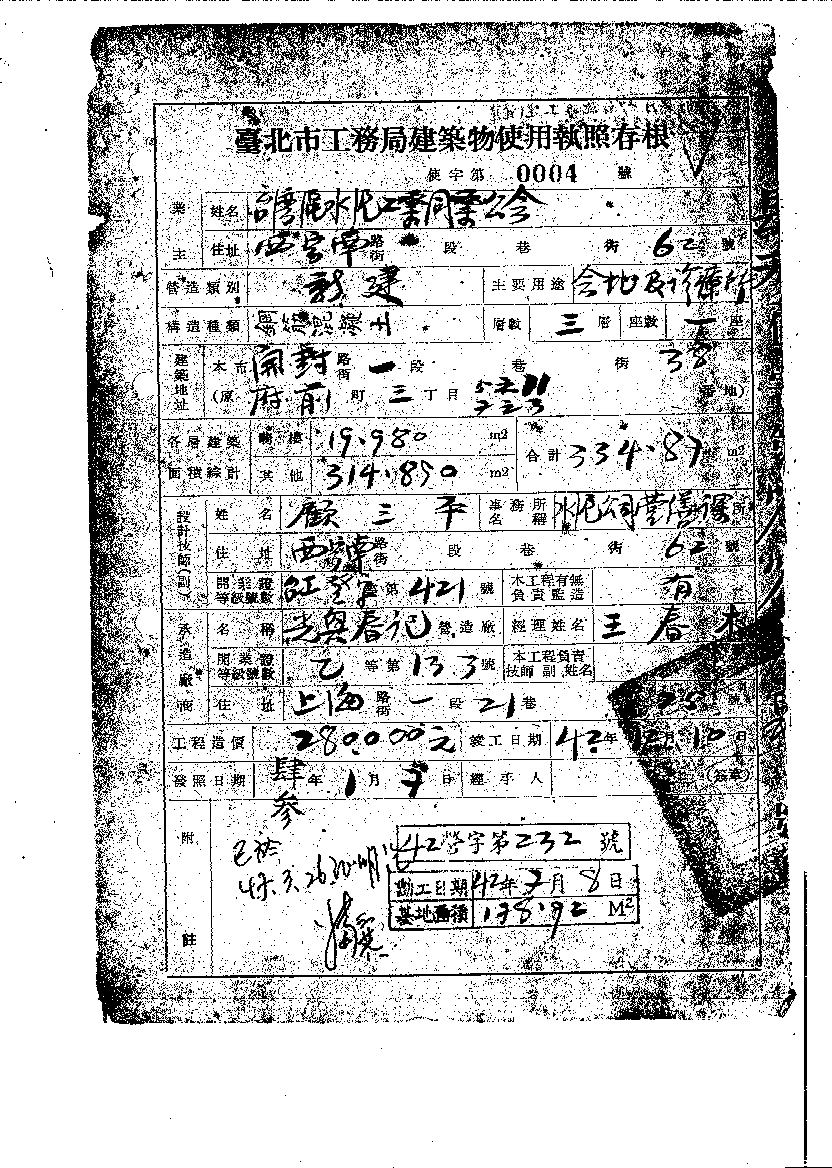 臺北市工務局建築物使用執照存根
使字第 0004 號
業主 姓名 臺灣區水泥工業同業公會
住址 西寧南 路街 段 巷 街 62 號
營造類別 新建 主要用途 會址及診療所
構造種類 鋼筋混凝土 層數 三 層 座數 一 座
建築地址 本市 開封 路街 一 段 巷 街 38
(原 府前 町 三 丁目 番地)
各層建築面積總計 騎樓 19.980 m2 合計 334.87 m2
其他 314.890 m2
設計技師(副) 姓名 顧三平 事務所名稱 水泥公司營繕課 所
住址 西寧南 路街 段 巷 街 62 號
開業證等級號數 第 421 號 本工程有無負責監造 有
承造廠商 名稱 光與春記 營造廠 經理姓名 王春木
開業證等級號數 乙 等第 133 號 本工程負責技師副姓名
住址 上海 路街 一 段 21 巷 號
工程造價 280,000元 竣工日期 42年12月10日
發照日期 肆參 年 1 月 日 經手人 (簽章)
附註
42營字第232號
動工日期 42年 月8日
基地面積 198.92 M²